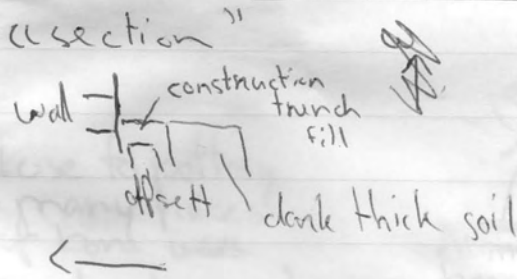 "section"
wall
construction
trunch
fill
offsett
dark thick soil